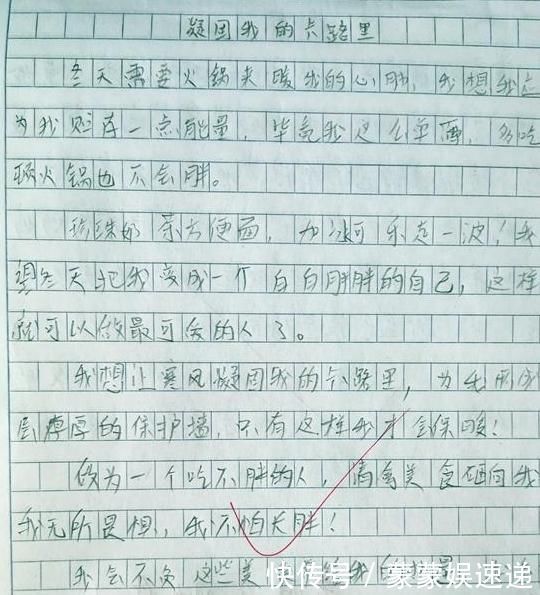 凝固我的卡路里
冬天需要火锅来暖我的心肺,我想我应
为我贮存一点能量,毕竟我这么单薄,多吃
顿火锅也不会胖。
珍珠奶茶方便面,加冰可乐走一波!我
望冬天把我变成一个白白胖胖的自己,这样
就可以做最可爱的人了。
我想让寒风凝固我的卡路里,为我形成
层厚厚的保护墙,只有这样我才会保暖!
做为一个吃不胖的人,请拿美食砸向我
我无所畏惧,我不怕长胖!
我会不负这些美
快传号/蒙蒙娱速递